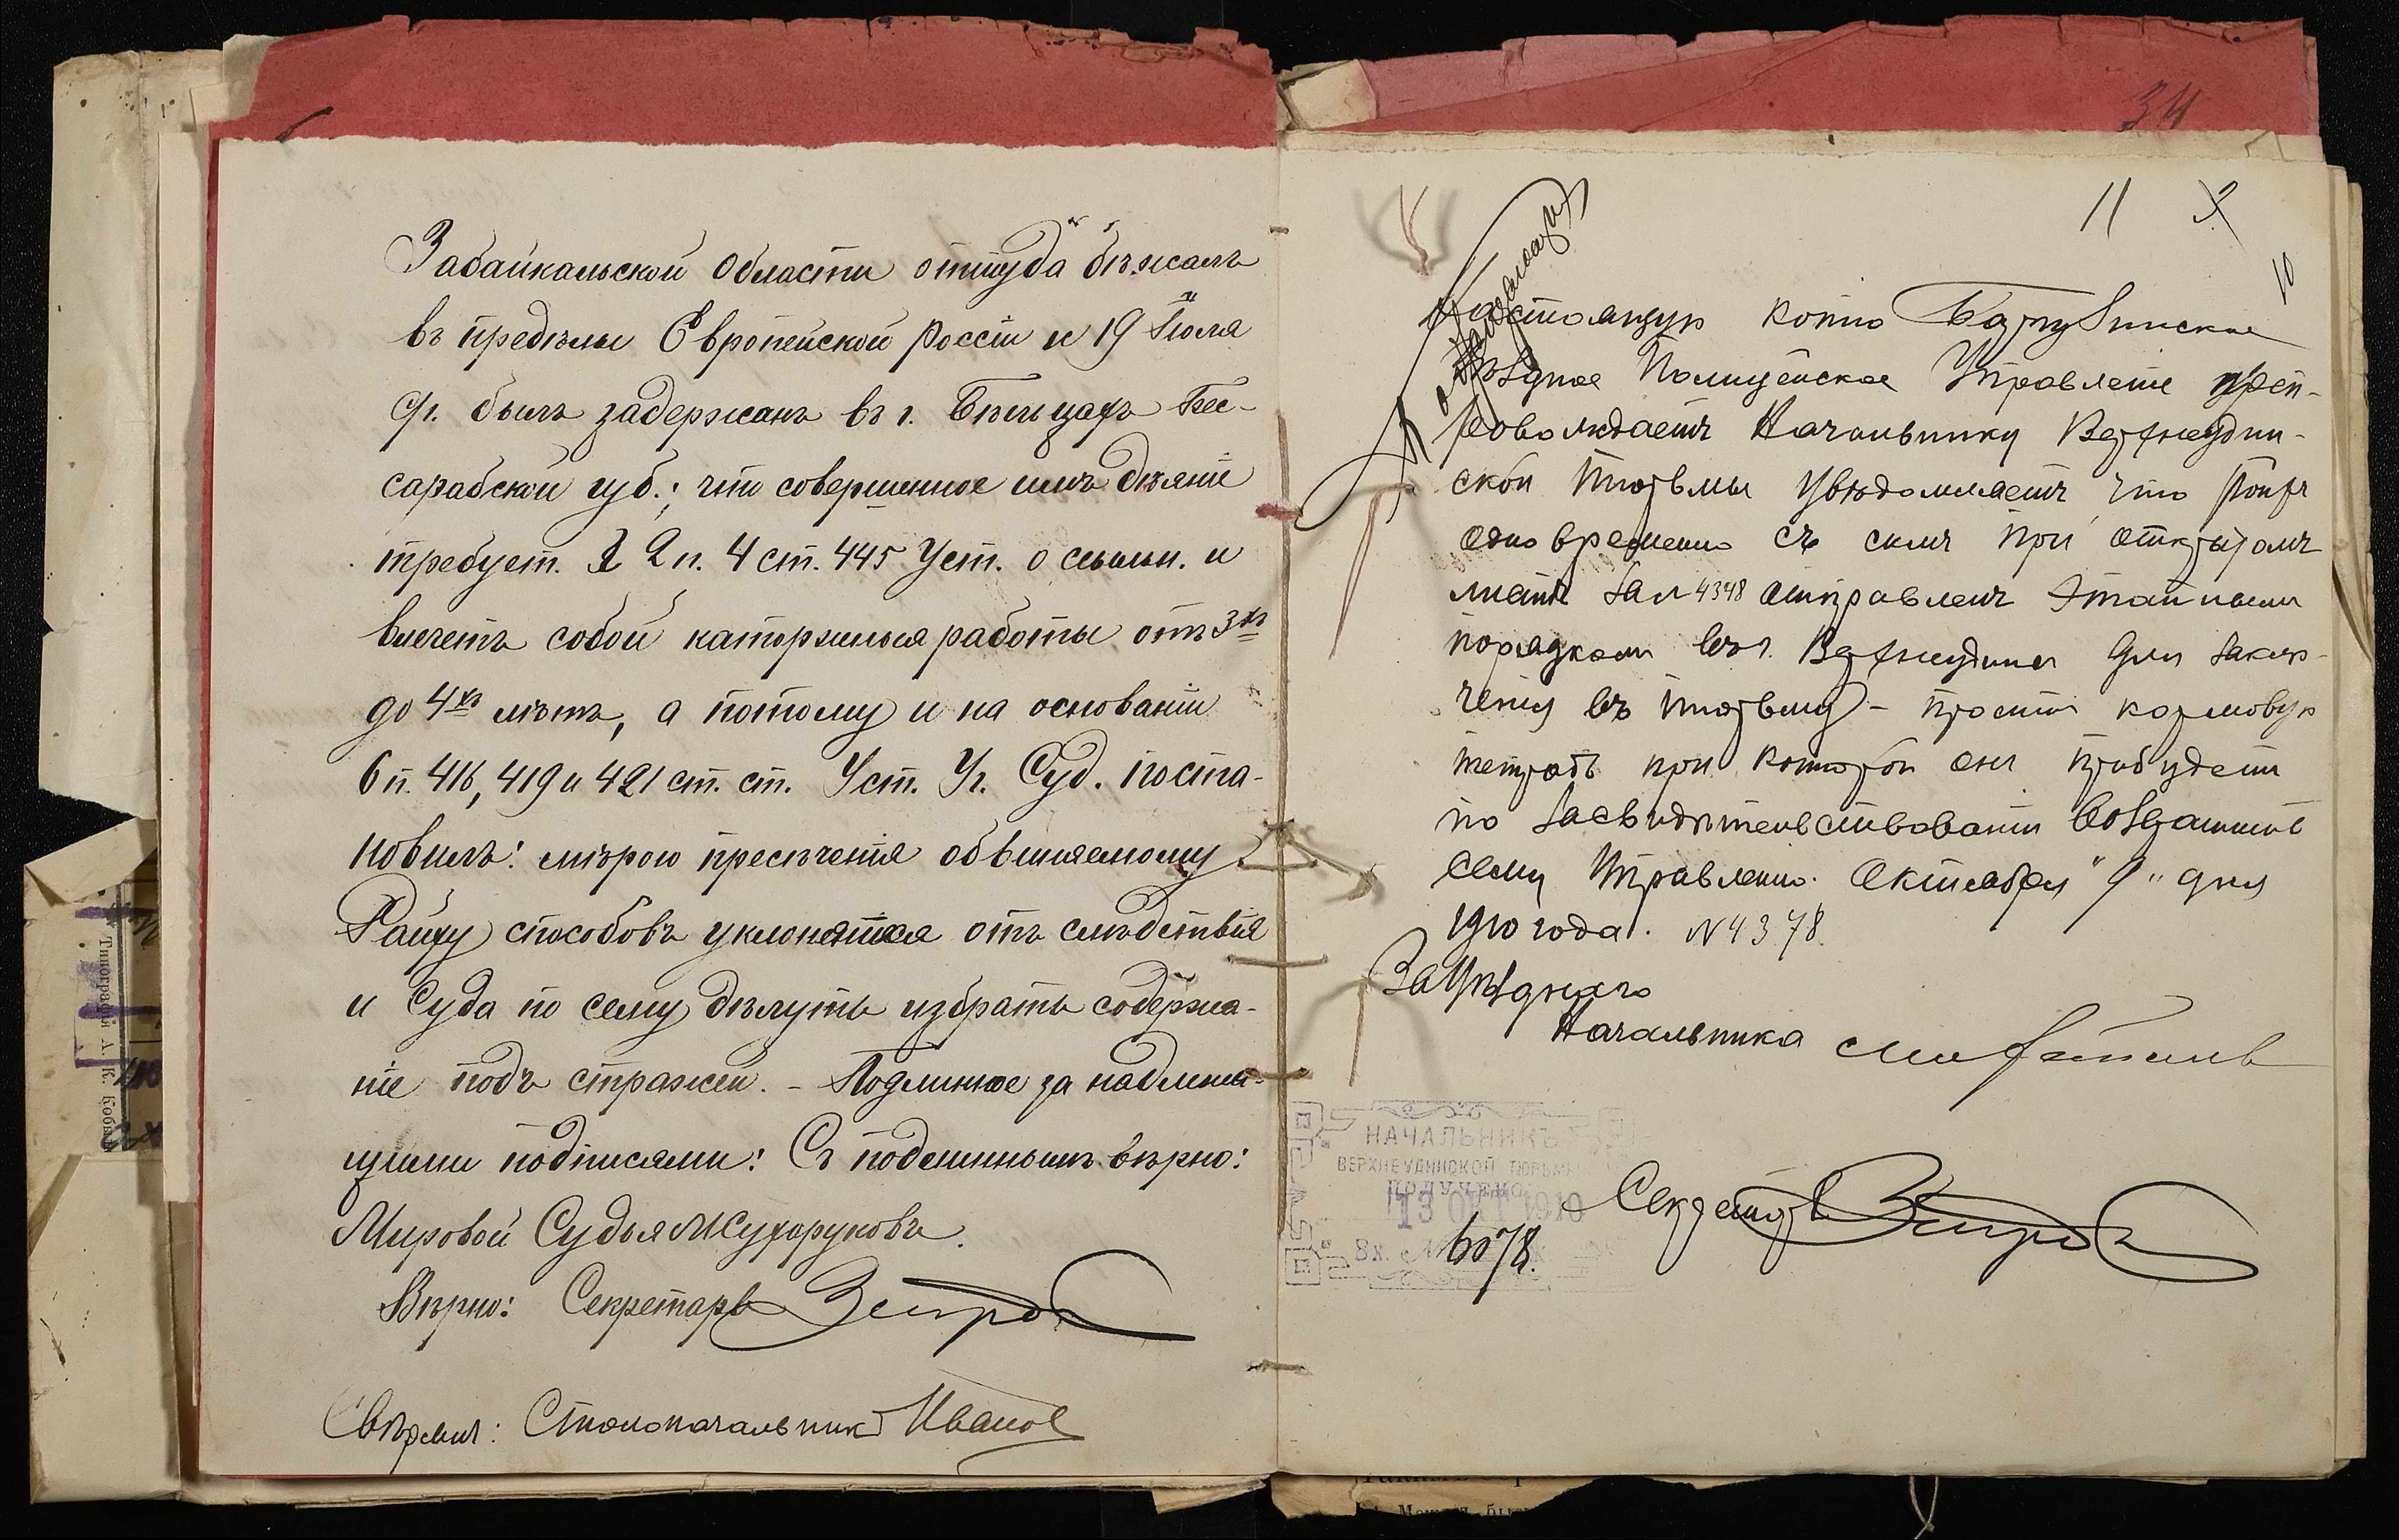 Забайкальской Области откуда бѣжалъ
въ предѣлы Европейской Россіи и 19 Іюля
с/г. былъ задержанъ въ г. Бѣльцахъ Бес-
сарабской губ.; что совершенное имъ дѣяніе
требует. 2 п. 4 ст. 445 Уст. о ссыльн. и
влечетъ собой каторжныя работы отъ 3хъ
до 4хъ лѣтъ, а потому и на основаніи
6 п. 416, 419 и 421 ст. ст. Уст. Уг. Суд. поста-
новилъ: мѣрою пресѣченія обвиняемому
Райху способовъ уклонятися отъ слѣдствія
и Суда по сему дѣлу избрать содержа-
ніе подъ стражей. - Подлинное за надлежа-
щими подписями: Съ подлиннымъ вѣрно:
Мировой Судья М Сухоруковъ.
Вѣрно: Секретарь
Свѣрялъ: Столоначальникъ Иванов
34
11
10
Настоящую копію Баргузинское
Уѣздное Полицейское Управленіе преп-
ровождаетъ Начальнику Верхнеудин-
ской тюрьмы увѣдомляетъ что Райхъ
одновременно съ симъ при открытомъ
листѣ за № 4348 отправленъ этапнымъ
порядкомъ въ г. Верхнеудинск для заклю-
ченія въ тюрьму - проситъ кормовую
тетрадь при которой онъ прибудетъ
по засвидѣтельствованіи возвратить
сему Управленію. Октября "9" дня
1910 года. № 4378.
За Уѣзднаго
Начальника
НАЧАЛЬНИКЪ
ВЕРХНЕУДИНСКОЙ ТЮРЬМЫ
ПОЛУЧЕНО
13 ОКТ 1910
Вх. №
6578.
Секретарь
Типографія А. К. Кобы